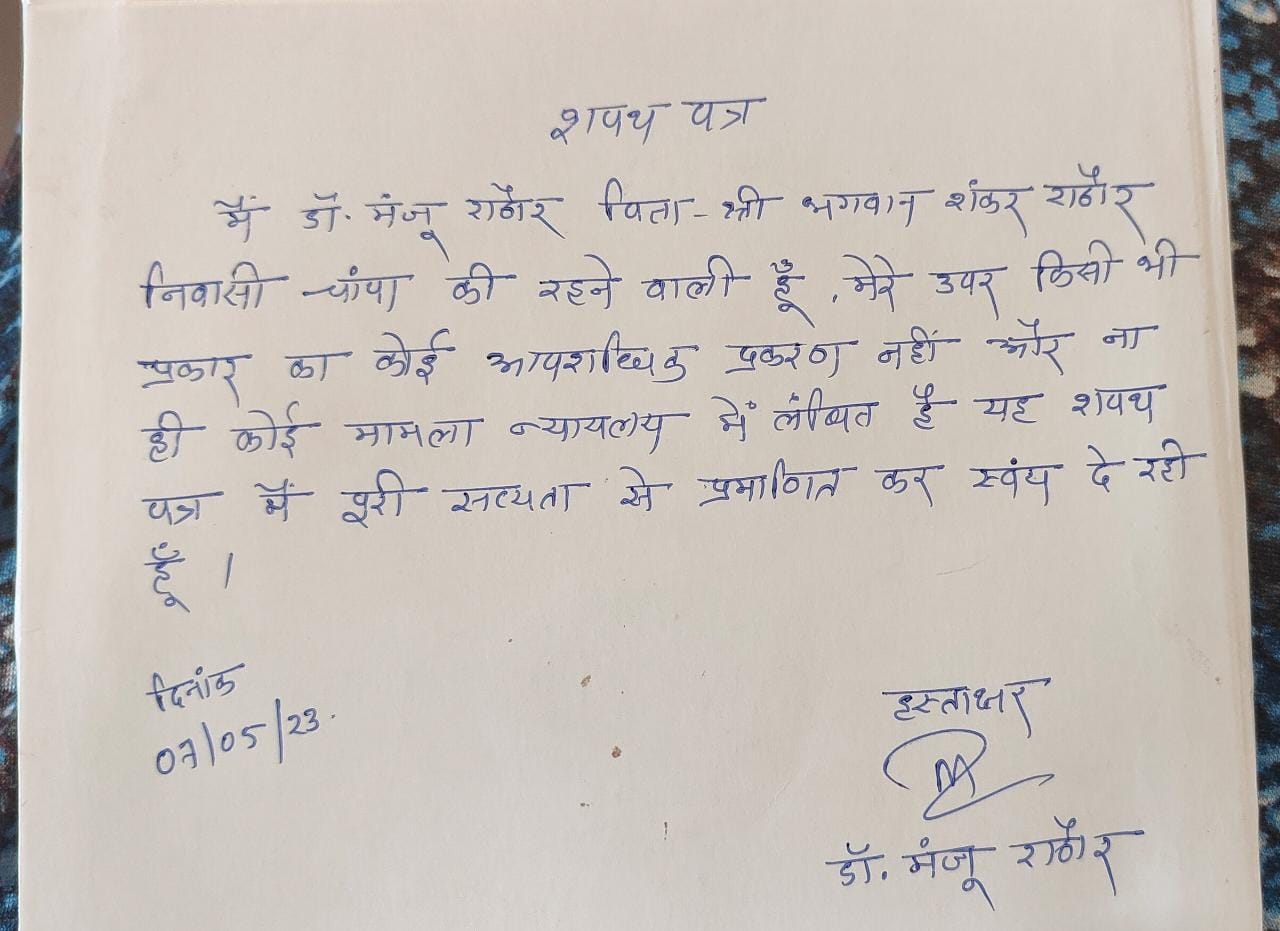 शपथ पत्र
मैं डॉ. मंजू राठौर पिता - श्री भगवान शंकर राठौर
निवासी चांपा की रहने वाली हूँ . मेरे उपर किसी भी
प्रकार का कोई आपराधिक प्रकरण नहीं और ना
ही कोई मामला न्यायलय में लंबित है यह शपथ
पत्र मैं पूरी सत्यता से प्रमाणित कर स्वंय दे रही
हूँ ।
दिनांक
07/05/23.
हस्ताक्षर
डॉ. मंजू राठौर